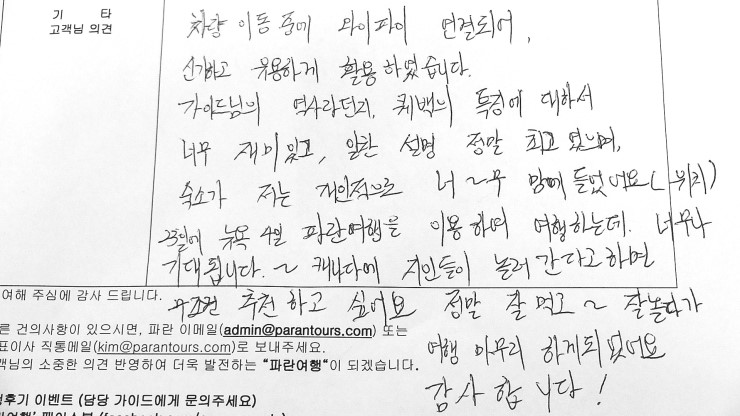 기 타
고객님 의견
차량 이동 중에 와이파이 연결되어,
신기하고 유용하게 활용하였습니다.
가이드님의 역사라던지, 퀘백의 특징에 대해서
너무 재미있고, 알찬 설명 정말 최고였으며,
숙소가 저는 개인적으로 너~무 맘에 들었어요(~위치)
23일에 뉴욕 4일 파란여행을 이용하여 여행하는데, 너무나
기대됩니다. ~ 캐나다에 지인들이 놀러간다고하면
무조건 추천하고 싶어요 정말 잘먹고 ~ 잘놀다가
여행 마무리 하게되었어요
감사합니다!
여해 주심에 감사 드립니다.
른 건의사항이 있으시면, 파란 이메일(admin@parantours.com) 또는
표이사 직통메일(kim@parantours.com)로 보내주세요.
객님의 소중한 의견 반영하여 더욱 발전하는 “파란여행“이 되겠습니다.
후기 이벤트 (담당 가이드에게 문의주세요)